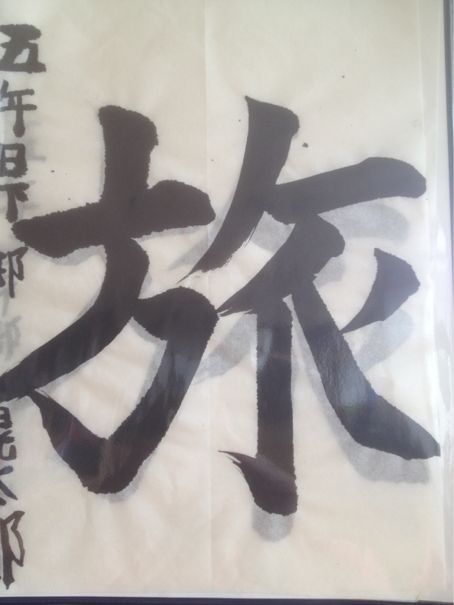 旅
五年 日下部晃太郎